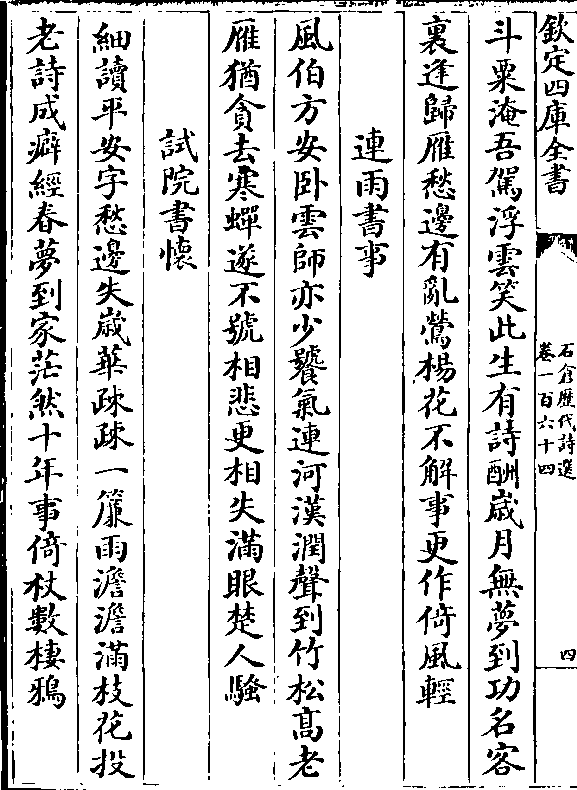 欽定四庫全書
石倉歷代詩選
卷一百六十四
四
斗粟淹吾駕浮雲笑此生有詩酬嵗月無夢到功名客
裏逢歸雁愁邊有亂鶯楊花不解事更作倚風輕
連雨書事
風伯方安卧雲師亦少饕氣連河漢潤聲到竹松髙老
雁猶貪去寒蟬遂不號相悲更相失滿眼楚人騷
試院書懷
細讀平安字愁邊失嵗華疎疎一簾雨澹澹滿枝花投
老詩成癖經春夢到家茫然十年事倚杖數棲鴉